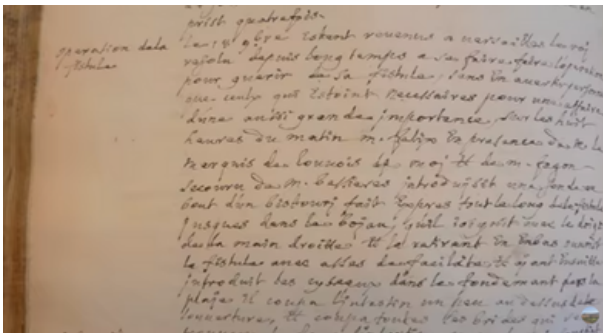 prist quatrefois.
operation dela fistule
le 18 9bre estant revenus a versailles le roj
resolu depuis longtemps a se faire faire l'operation
pour guerir de sa fistule, sans en avertir personne
que ceux qui estoint necessaires pour une affaire
d'une aussi grande importance, sur les huit
heures du matin m. felix en presence de m. le
marquis de louvois de moj et de m. fagon
secouru de m. bessieres introduisit une sonde au
bout d'un bistourj fait expres tout le long de la fistule
jusques dans le bojau, qu'il joignit avec le doigt
de la main droitte et la retirant en enbas ouvrit
la fistule avec asses de facilité, et ajant ensuitte
introduit les cyseaux dans le fondement par la
plaje il coupa l'intestin un peu au dessus de
l'ouverture, et coupa toutes les brides qui se